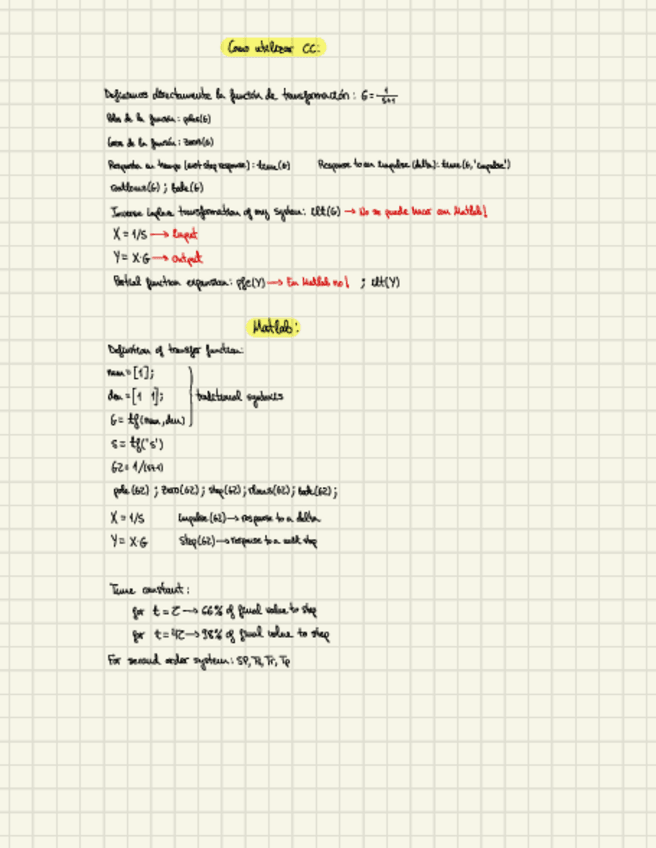 Como utilizar CC:
Definimos directamente la función de transformación: G = 1/(s+1)
Polos de la función: poles(G)
Ceros de la función: zeros(G)
Respuesta en tiempo (not step response): time(G) Response to an impulse (delta): time(G,'impulse')
rootlocus(G) ; bode(G)
Inverse laplace transformation of my system: ilt(G) → No se puede hacer con Matlab!
X = 1/S → Input
Y = X·G → Output
Partial function expansion: pfe(Y) → En Matlab no! ; ilt(Y)
Matlab:
Definition of transfer function:
num = [1];
den = [1 1]; traditional syntaxis
G = tf(num,den)
s = tf('s')
G2 = 1/(s+1)
pole(G2) ; zero(G2) ; step(G2) ; rlocus(G2) ; bode(G2) ;
X = 1/S impulse(G2) → response to a delta
Y = X·G step(G2) → response to a unit step
Time constant:
for t = τ → 66% of final value to step
for t = 4τ → 98% of final value to step
For second order system: SP, Ts, Tr, Tp